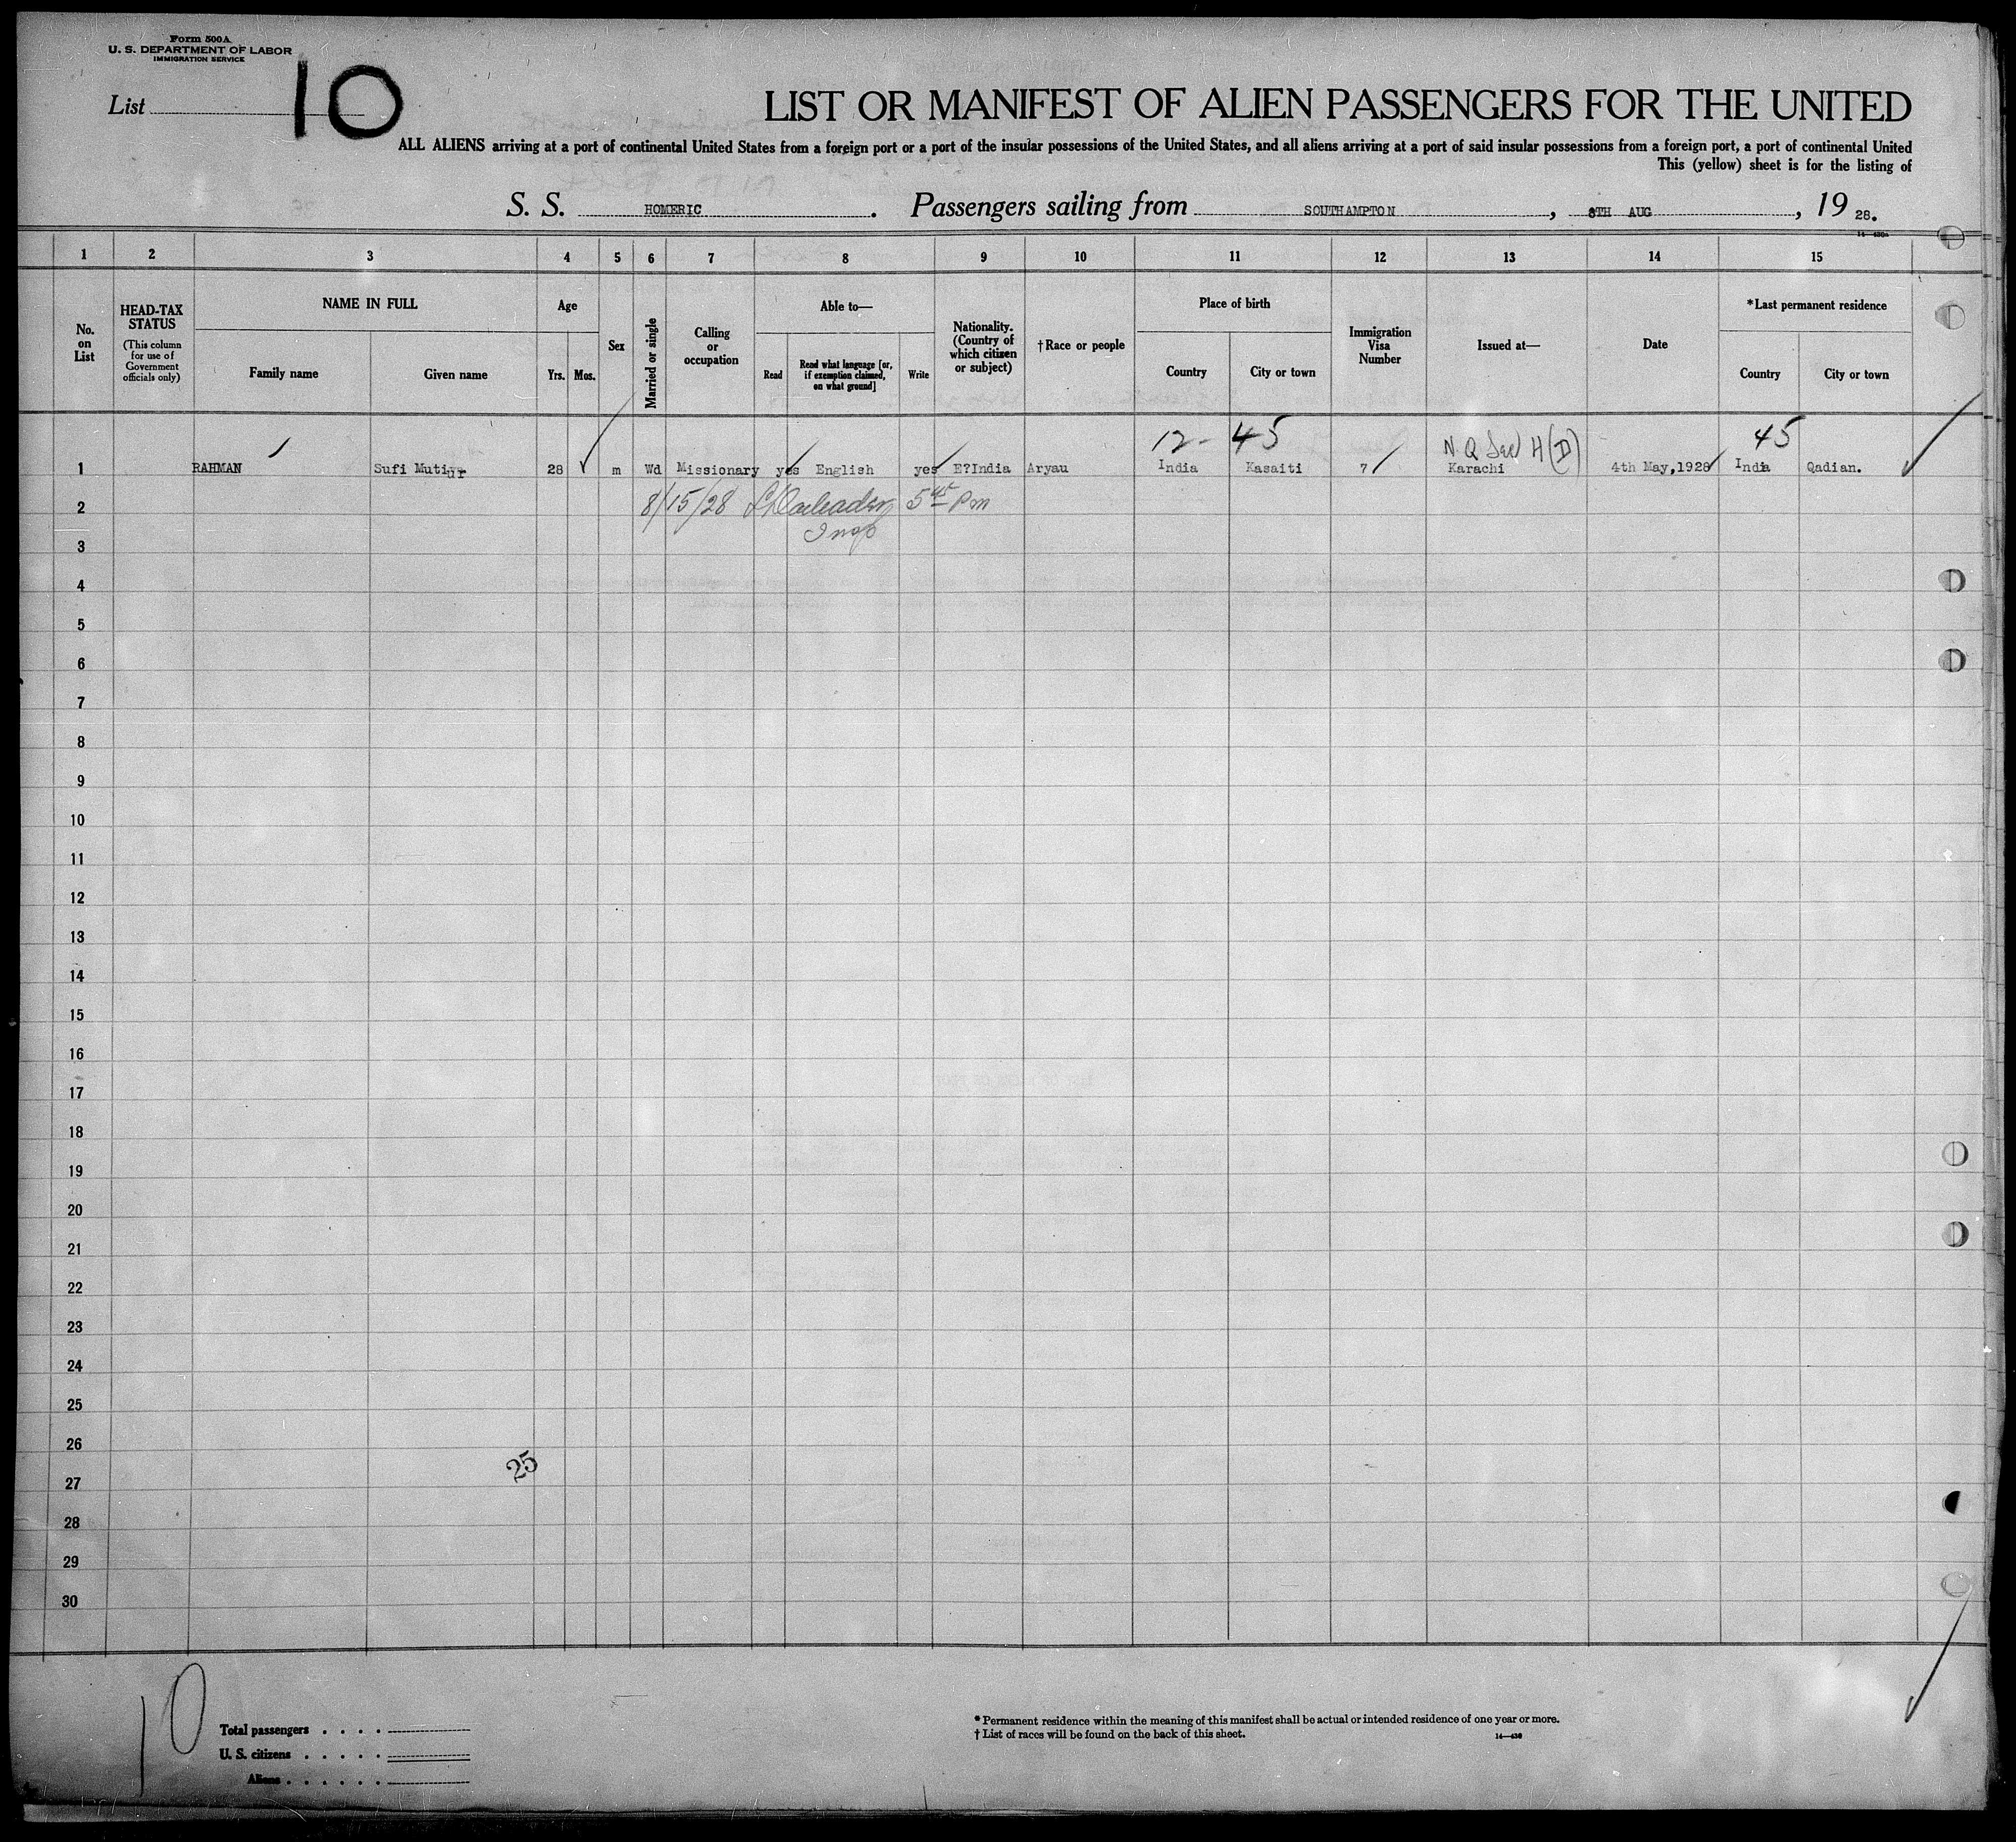 Form 500A
U. S. DEPARTMENT OF LABOR
IMMIGRATION SERVICE
List 10
LIST OR MANIFEST OF ALIEN PASSENGERS FOR THE UNITED
ALL ALIENS arriving at a port of continental United States from a foreign port or a port of the insular possessions of the United States, and all aliens arriving at a port of said insular possessions from a foreign port, a port of continental United
This (yellow) sheet is for the listing of
S. S. HOMERIC. Passengers sailing from SOUTHAMPTON, 8TH AUG, 19 28.
1 2 3 4 5 6 7 8 9 10 11 12 13 14 15
No. on List
HEAD-TAX STATUS
(This column for use of Government officials only)
NAME IN FULL
Family name
Given name
Age
Yrs.
Mos.
Sex
Married or single
Calling or occupation
Able to—
Read
Read what language [or, if exemption claimed, on what ground]
Write
Nationality. (Country of which citizen or subject)
†Race or people
Place of birth
Country
City or town
Immigration Visa Number
Issued at—
Date
*Last permanent residence
Country
City or town
12- 45 N.Q H(D) 45
1 RAHMAN Sufi Mutiur 28 m Wd Missionary yes English yes E?India Aryau India Kasaiti 7 Karachi 4th May,1928 India Qadian.
2 8/15/28 5 pm
Insp
3
4
5
6
7
8
9
10
11
12
13
14
15
16
17
18
19
20
21
22
23
24
25
26
25
27
28
29
30
10
Total passengers . . . .
U. S. citizens . . . . .
Aliens . . . . . .
* Permanent residence within the meaning of this manifest shall be actual or intended residence of one year or more.
† List of races will be found on the back of this sheet.
14—430